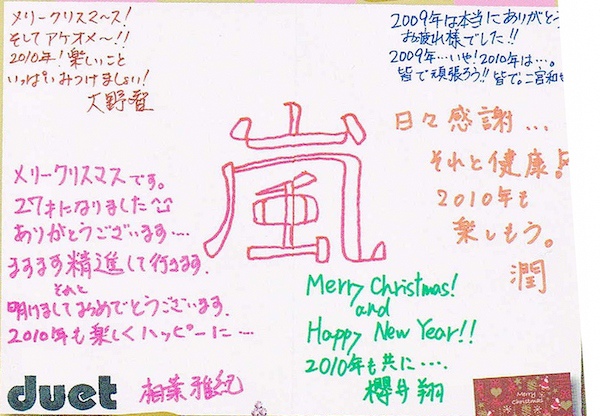 メリークリスマ〜ス!
そしてアケオメ〜!!
2010年!楽しいこと
いっぱいみつけましょい!
大野智
2009年は本当にありがとう
お疲れ様でした!!
2009年…いや!2010年は…。
皆で頑張ろう!!皆で。二宮和也
嵐
日々感謝…
それと健康!
2010年も
楽しもう。
潤
メリークリスマスです。
27才になりました
ありがとうございます…
ますます精進して行きます。
それと
明けましておめでとうございます。
2010年も楽しくハッピーに…
相葉雅紀
Merry Christmas!
and
Happy New Year!!
2010年も共に….
櫻井翔
duet
Merry
Christmas